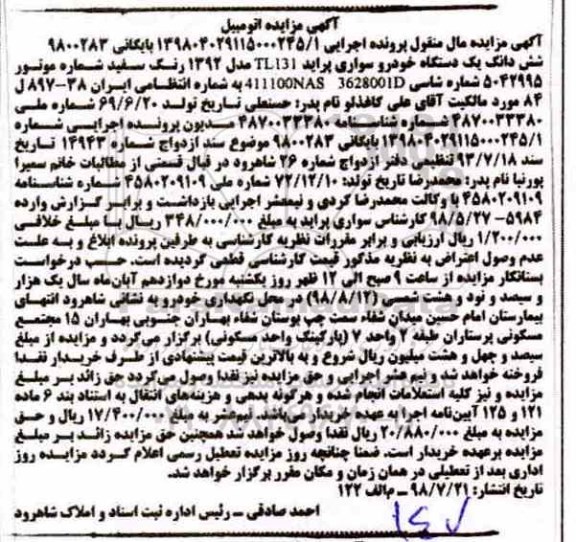 آگهی مزایده اتومبیل
آگهی مزایده مال منقول پرونده اجرایی ۱۳۹۸۰۴۰۲۹۱۱۵۰۰۰۲۴۵/۱ بایگانی ۹۸۰۰۲۸۳
شش دانگ یک دستگاه خودرو سواری پراید TL131 مدل ۱۳۹۲ رنگ سفید شماره موتور
۵۰۴۲۹۹۵ شماره شاسی 411100NAS 3628001D به شماره انتظامی ایران ۳۸-۸۹۷ ل
۸۴ مورد مالکیت آقای علی کاغذلو نام پدر: حسنعلی تاریخ تولد ۶۹/۶/۲۰ شماره ملی
۴۸۷۰۰۳۳۳۸۰ شماره شناسنامه ۴۸۷۰۰۳۳۳۸۰ مدیون پرونده اجرایی شماره
۱۳۹۸۰۴۰۲۹۱۱۵۰۰۰۲۴۵/۱ بایگانی ۹۸۰۰۲۸۳ موضوع سند ازدواج شماره ۱۴۹۴۳ تاریخ
سند ۹۳/۷/۱۸ تنظیمی دفتر ازدواج شماره ۲۶ شاهرود در قبال قسمتی از مطالبات خانم سمیرا
پورنیا نام پدر: محمدرضا تاریخ تولد: ۷۲/۱۲/۱۰ شماره ملی ۴۵۸۰۲۰۹۱۰۹ شماره شناسنامه
۴۵۸۰۲۰۹۱۰۹ با وکالت محمدرضا کردی و نیمعشر اجرایی بازداشت و برابر گزارش وارده
۵۹۸۴-۹۸/۵/۲۷ کارشناس سواری پراید به مبلغ ۳۴۸/۰۰۰/۰۰۰ ریال با مبلغ خلافی
۱/۲۰۰/۰۰۰ ریال ارزیابی و برابر مقررات نظریه کارشناسی به طرفین پرونده ابلاغ و به علت
عدم وصول اعتراض به نظریه مذکور قیمت کارشناسی قطعی گردیده است. حسب درخواست
بستانکار مزایده از ساعت ۹ صبح الی ۱۲ ظهر روز یکشنبه مورخ دوازدهم آبان‌ماه سال یک هزار
و سیصد و نود و هشت شمسی (۹۸/۸/۱۲) در محل نگهداری خودرو به نشانی شاهرود انتهای
بیمارستان امام حسین میدان شفاء سمت چپ بوستان شفاء بهاران جنوبی بهاران ۱۵ مجتمع
مسکونی پرستاران طبقه ۲ واحد ۷ (پارکینگ واحد مسکونی) برگزار می‌گردد و مزایده از مبلغ
سیصد و چهل و هشت میلیون ریال شروع و به بالاترین قیمت پیشنهادی از طرف خریدار نقدا
فروخته خواهد شد و نیم عشر اجرایی و حق مزایده نیز نقدا وصول می‌گردد حق زائد بر مبلغ
مزایده و نیز کلیه استعلامات انجام شده و هرگونه بدهی و هزینه‌های انتقال به استناد بند ۶ ماده
۱۲۱ و ۱۲۵ آیین‌نامه اجرا به عهده خریدار می‌باشد. نیم‌عشر به مبلغ ۱۷/۴۰۰/۰۰۰ ریال و حق
مزایده به مبلغ ۲۰/۸۸۰/۰۰۰ ریال نقدا وصول خواهد شد همچنین حق مزایده زائد بر مبلغ
مزایده برعهده خریدار است. ضمنا چنانچه روز مزایده تعطیل رسمی اعلام گردد مزایده روز
اداری بعد از تعطیلی در همان زمان و مکان مقرر برگزار خواهد شد.
تاریخ انتشار: ۹۸/۷/۲۱ – م‌الف ۱۲۲
احمد صادقی – رئیس اداره ثبت اسناد و املاک شاهرود
۱۴۷